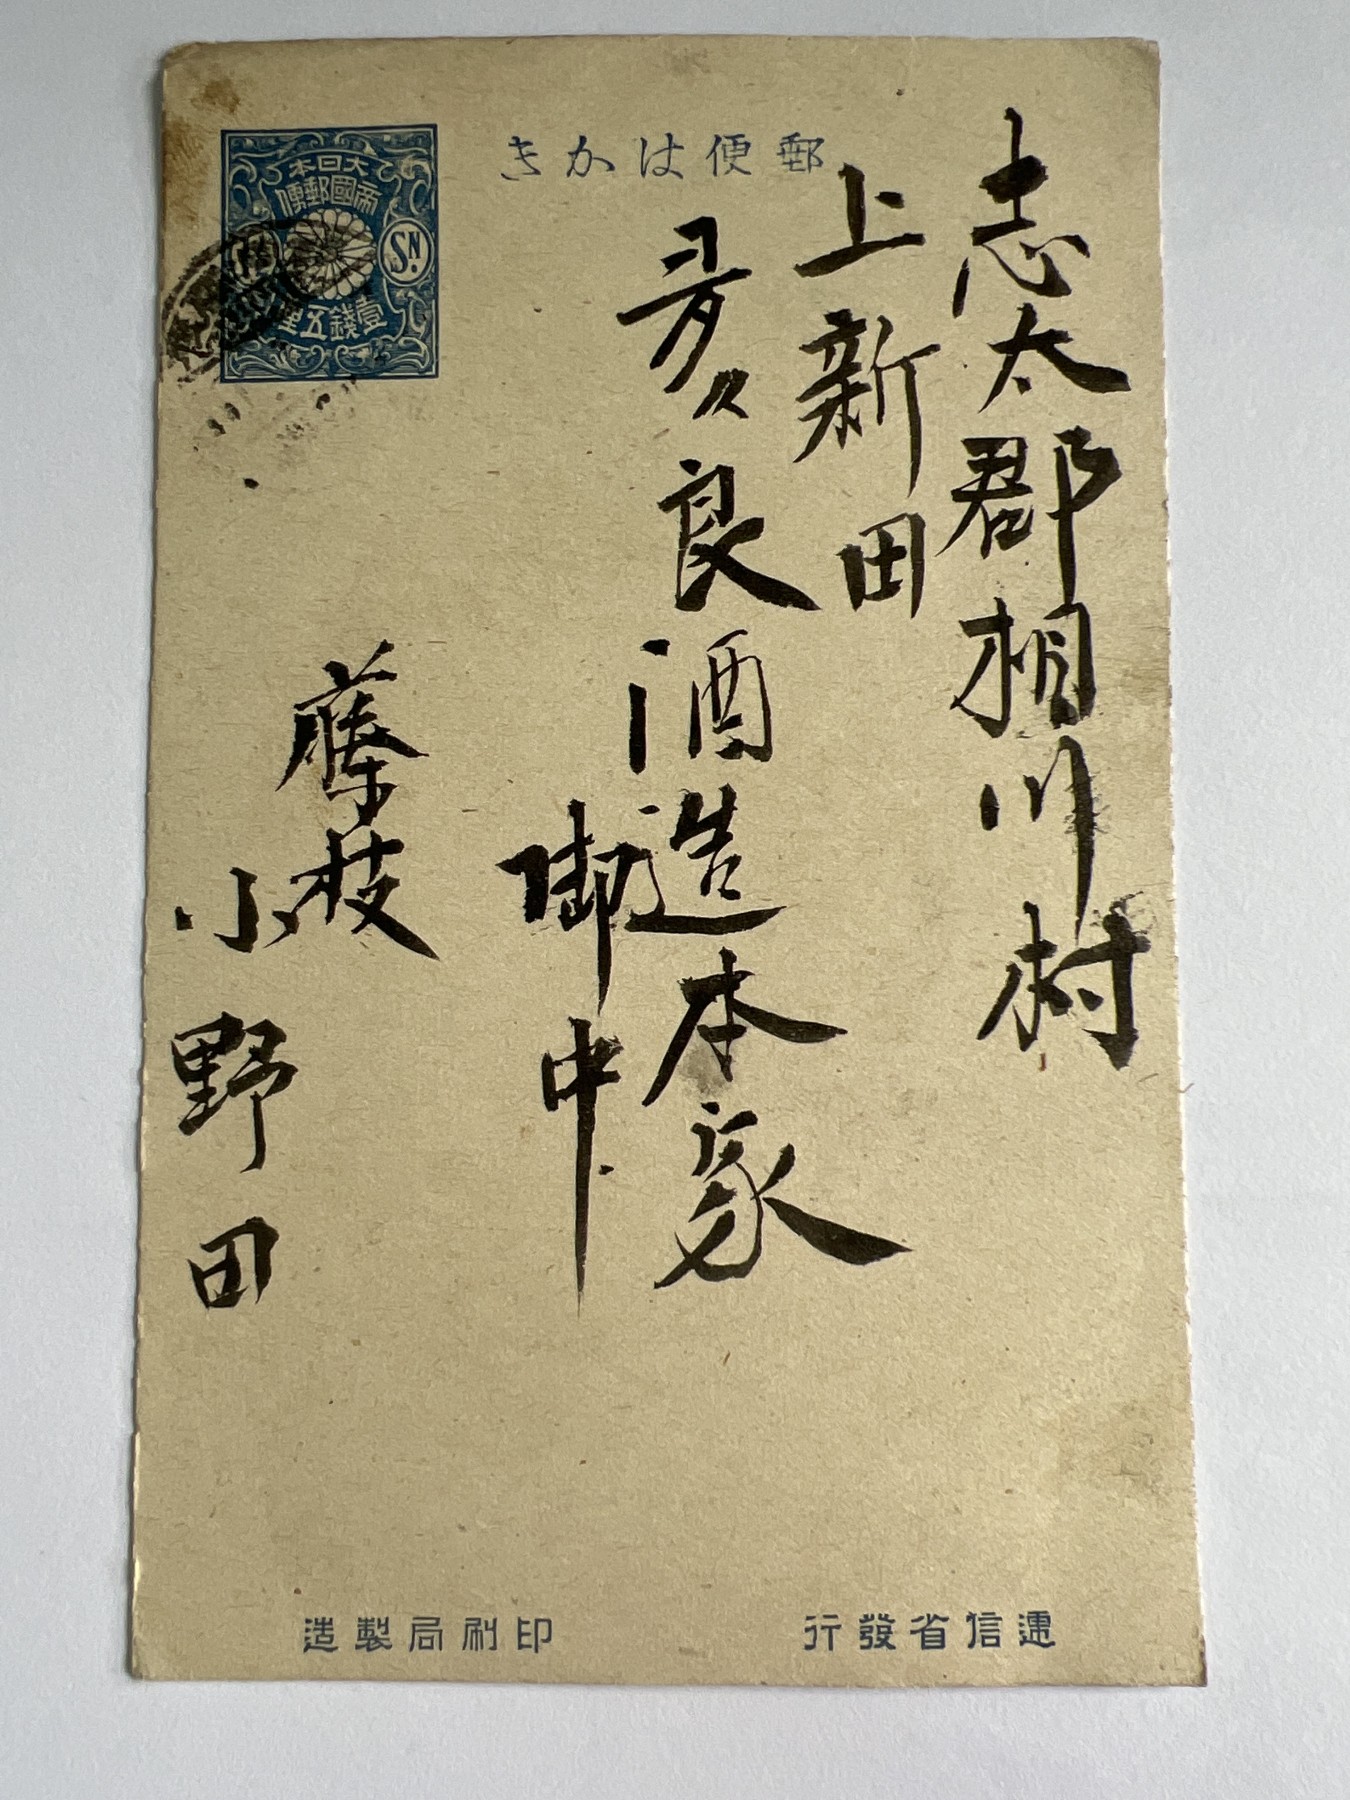 郵便はかき
大日本
帝國郵便
SN.
壹錢五厘
志太郡相川村
上新田
良酒造本家
御中
藤枝
小野田
遞信省發行
印刷局製造